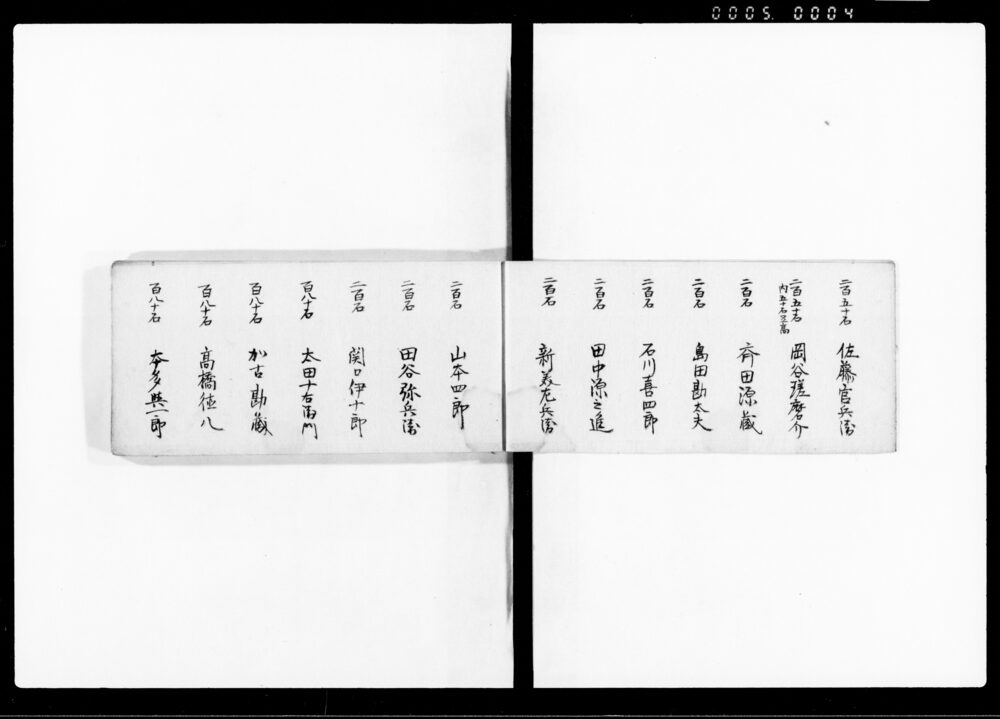 0005. 0004
二百五十石 佐藤官兵衛
二百五十石 内五十石足高 岡谷瑳磨介
二百石 斉田源蔵
二百石 島田勘太夫
二百石 石川喜四郎
二百石 田中源之進
二百石 新美左兵衛
二百石 山本四郎
二百石 田谷弥兵衛
二百石 関口伊十郎
百八十石 太田十右衛門
百八十石 加古勘蔵
百八十石 高橋徳八
百八十石 本多與一郎